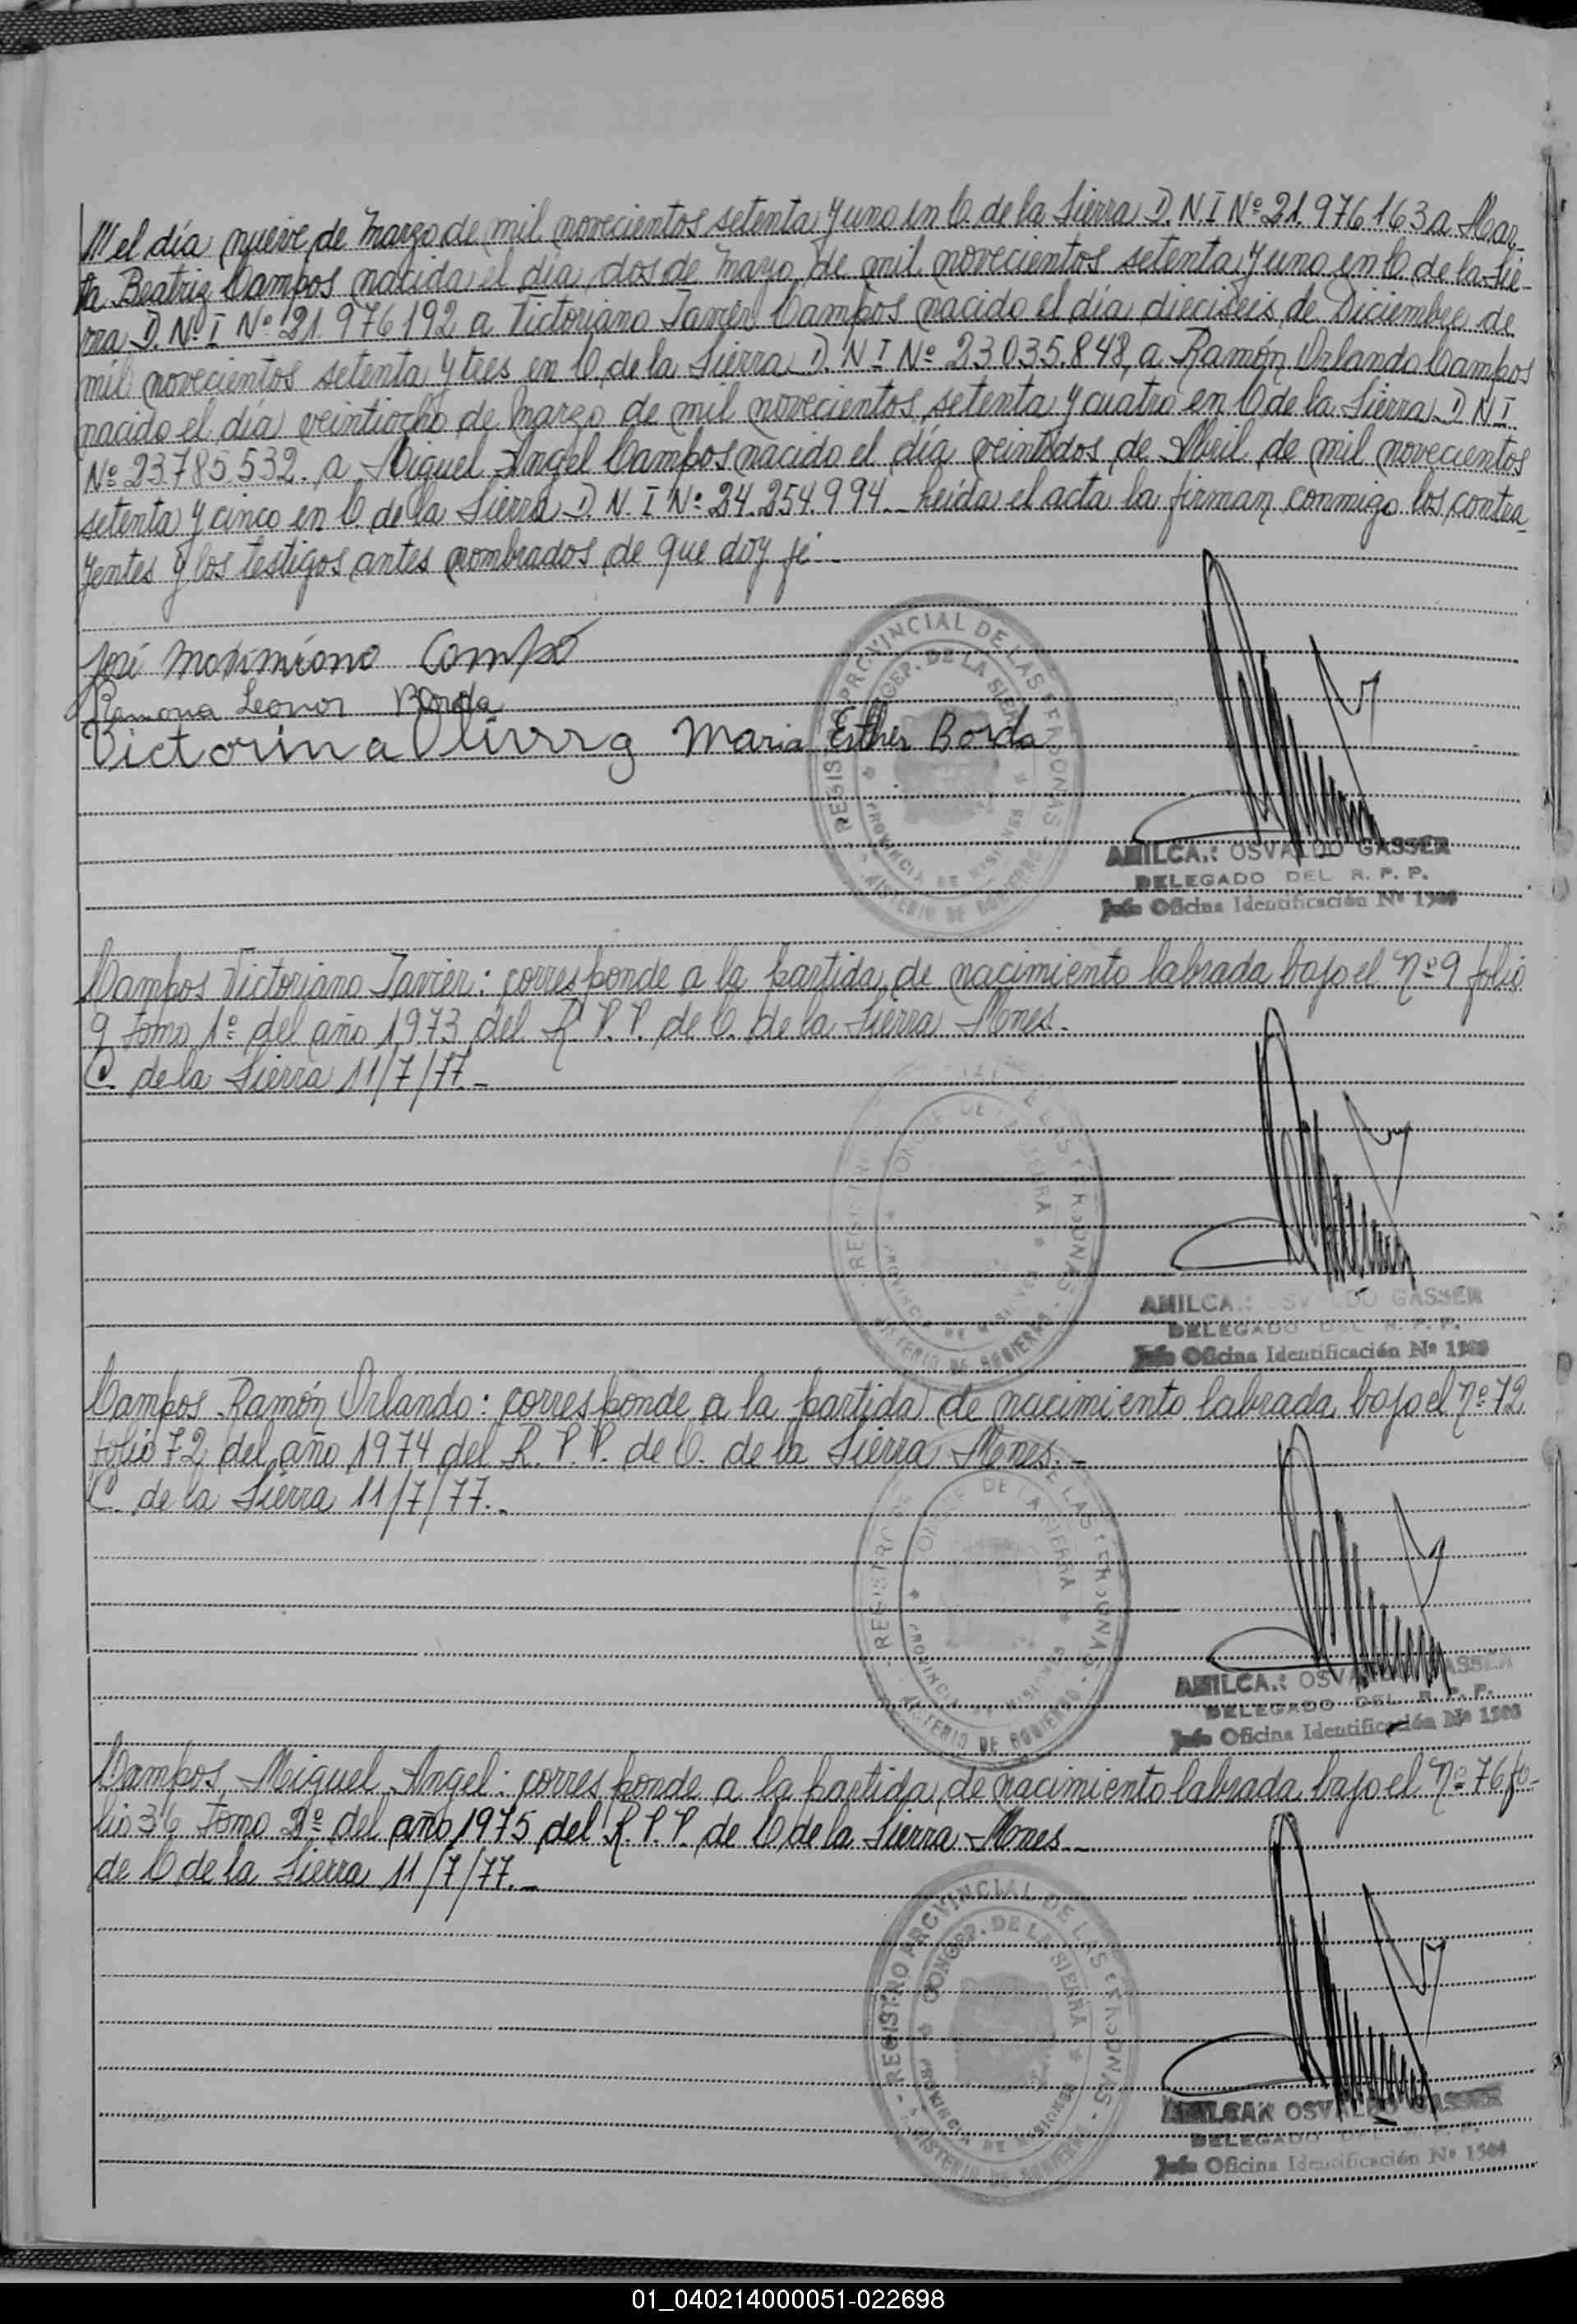 /// el día nueve de Marzo de mil novecientos setenta y uno en C. de la Sierra D. N I Nº 21.976 163 a Mar-
ta Beatriz Campos nacida el día dos de Mayo de mil novecientos setenta y uno en C. de la Sie-
rra D. N. I Nº 21 976 192 a Victoriano Javier Campos nacido el día dieciseis de Diciembre de
mil novecientos setenta y tres en C. de la Sierra D. N I Nº 23 035.848, a Ramón Orlando Campos
nacido el día veintiocho de Marzo de mil novecientos setenta y cuatro en C de la Sierra D N I
Nº 23785.532. a Miguel Angel Campos nacido el día veintidos de Abril de mil novecientos
setenta y cinco en C. de la Sierra D. N. I Nº 24.254.994._ Leída el acta la firman conmigo los contra_
yentes y los testigos antes nombrados de que doy fé._
José Maximiano Campo
Ramona Leonor Borda
Victorina Olivera Maria Esther Borda
REGISTRO PROVINCIAL DE LAS PERSONAS
CONCEP. DE LA SIERRA
PROVINCIA DE MISIONES
MINISTERIO DE GOBIERNO
AMILCAR OSVALDO GASSER
DELEGADO DEL R. P. P.
Jefe Oficina Identificación Nº
Campos Victoriano Javier: corresponde a la partida de nacimiento labrada bajo el Nº 9 folio
9 tomo 1º del año 1973 del R. P. P. de C. de la Sierra Mnes.-
C. de la Sierra 11/7/77_
REGISTRO PROVINCIAL DE LAS PERSONAS
CONCEP. DE LA SIERRA
PROVINCIA DE MISIONES
MINISTERIO DE GOBIERNO
AMILCAR OSVALDO GASSER
DELEGADO DEL R. P. P.
Jefe Oficina Identificación Nº
Campos Ramón Orlando: corresponde a la partida de nacimiento labrada bajo el Nº 72
folio 72 del año 1974 del R. P. P. de C. de la Sierra Mnes._
C. de la Sierra 11/7/77._
REGISTRO PROVINCIAL DE LAS PERSONAS
CONCEP. DE LA SIERRA
PROVINCIA DE MISIONES
MINISTERIO DE GOBIERNO
AMILCAR OSVALDO GASSER
DELEGADO DEL R. P. P.
Jefe Oficina Identificación Nº
Campos Miguel Angel: corresponde a la partida de nacimiento labrada bajo el Nº 76 fo-
lio 36 tomo 2º del año 1975 del R. P. P. de C de la Sierra Mnes_
de C de la Sierra 11/7/77._
REGISTRO PROVINCIAL DE LAS PERSONAS
CONCEP. DE LA SIERRA
PROVINCIA DE MISIONES
MINISTERIO DE GOBIERNO
AMILCAR OSVALDO GASSER
DELEGADO DEL R. P. P.
Jefe Oficina Identificación Nº
01_040214000051-022698